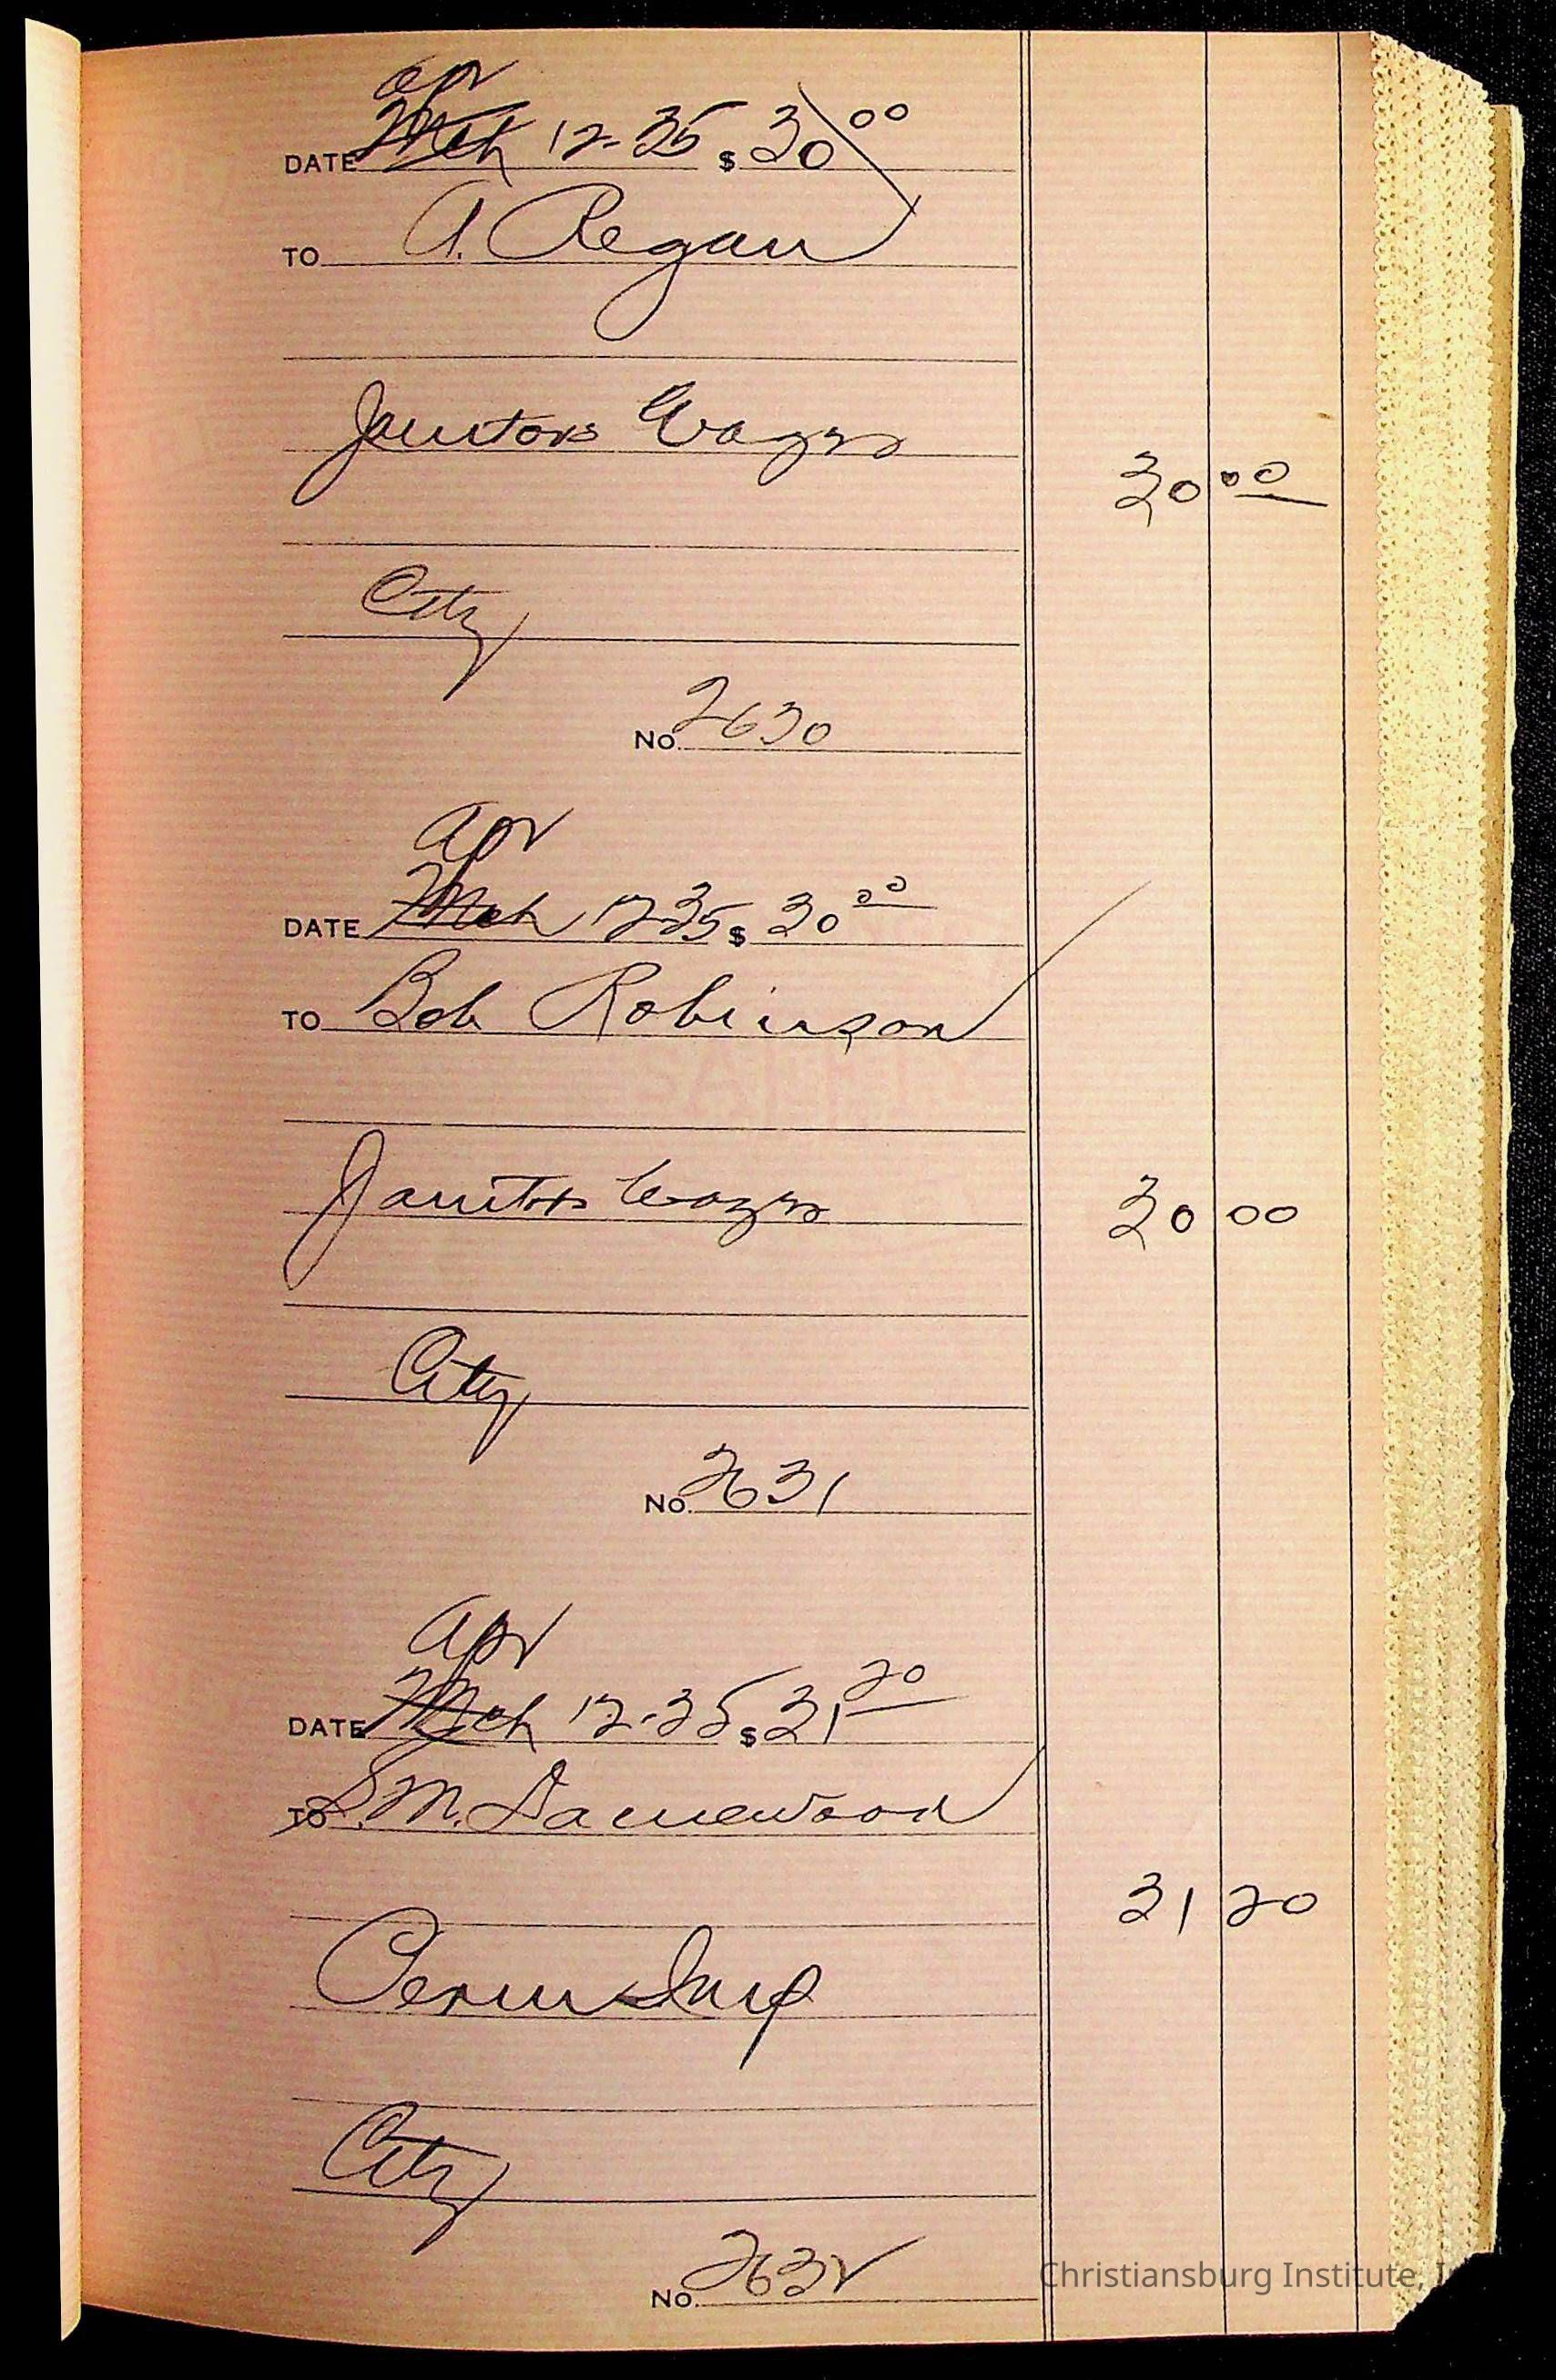 Apr
DATE Mch 12-35 $ 30 00
TO A. Regan
Janitors Wages
30 00
City
No. 2630
Apr
DATE Mch 12-35 $ 30 00
TO Bob Robinson
Janitors Wages
30 00
City
No. 2631
Apr
DATE Mch 12-35 $ 31 20
TO S.M. Damewood
31 20
City
No. 2632
Christiansburg Institute, I